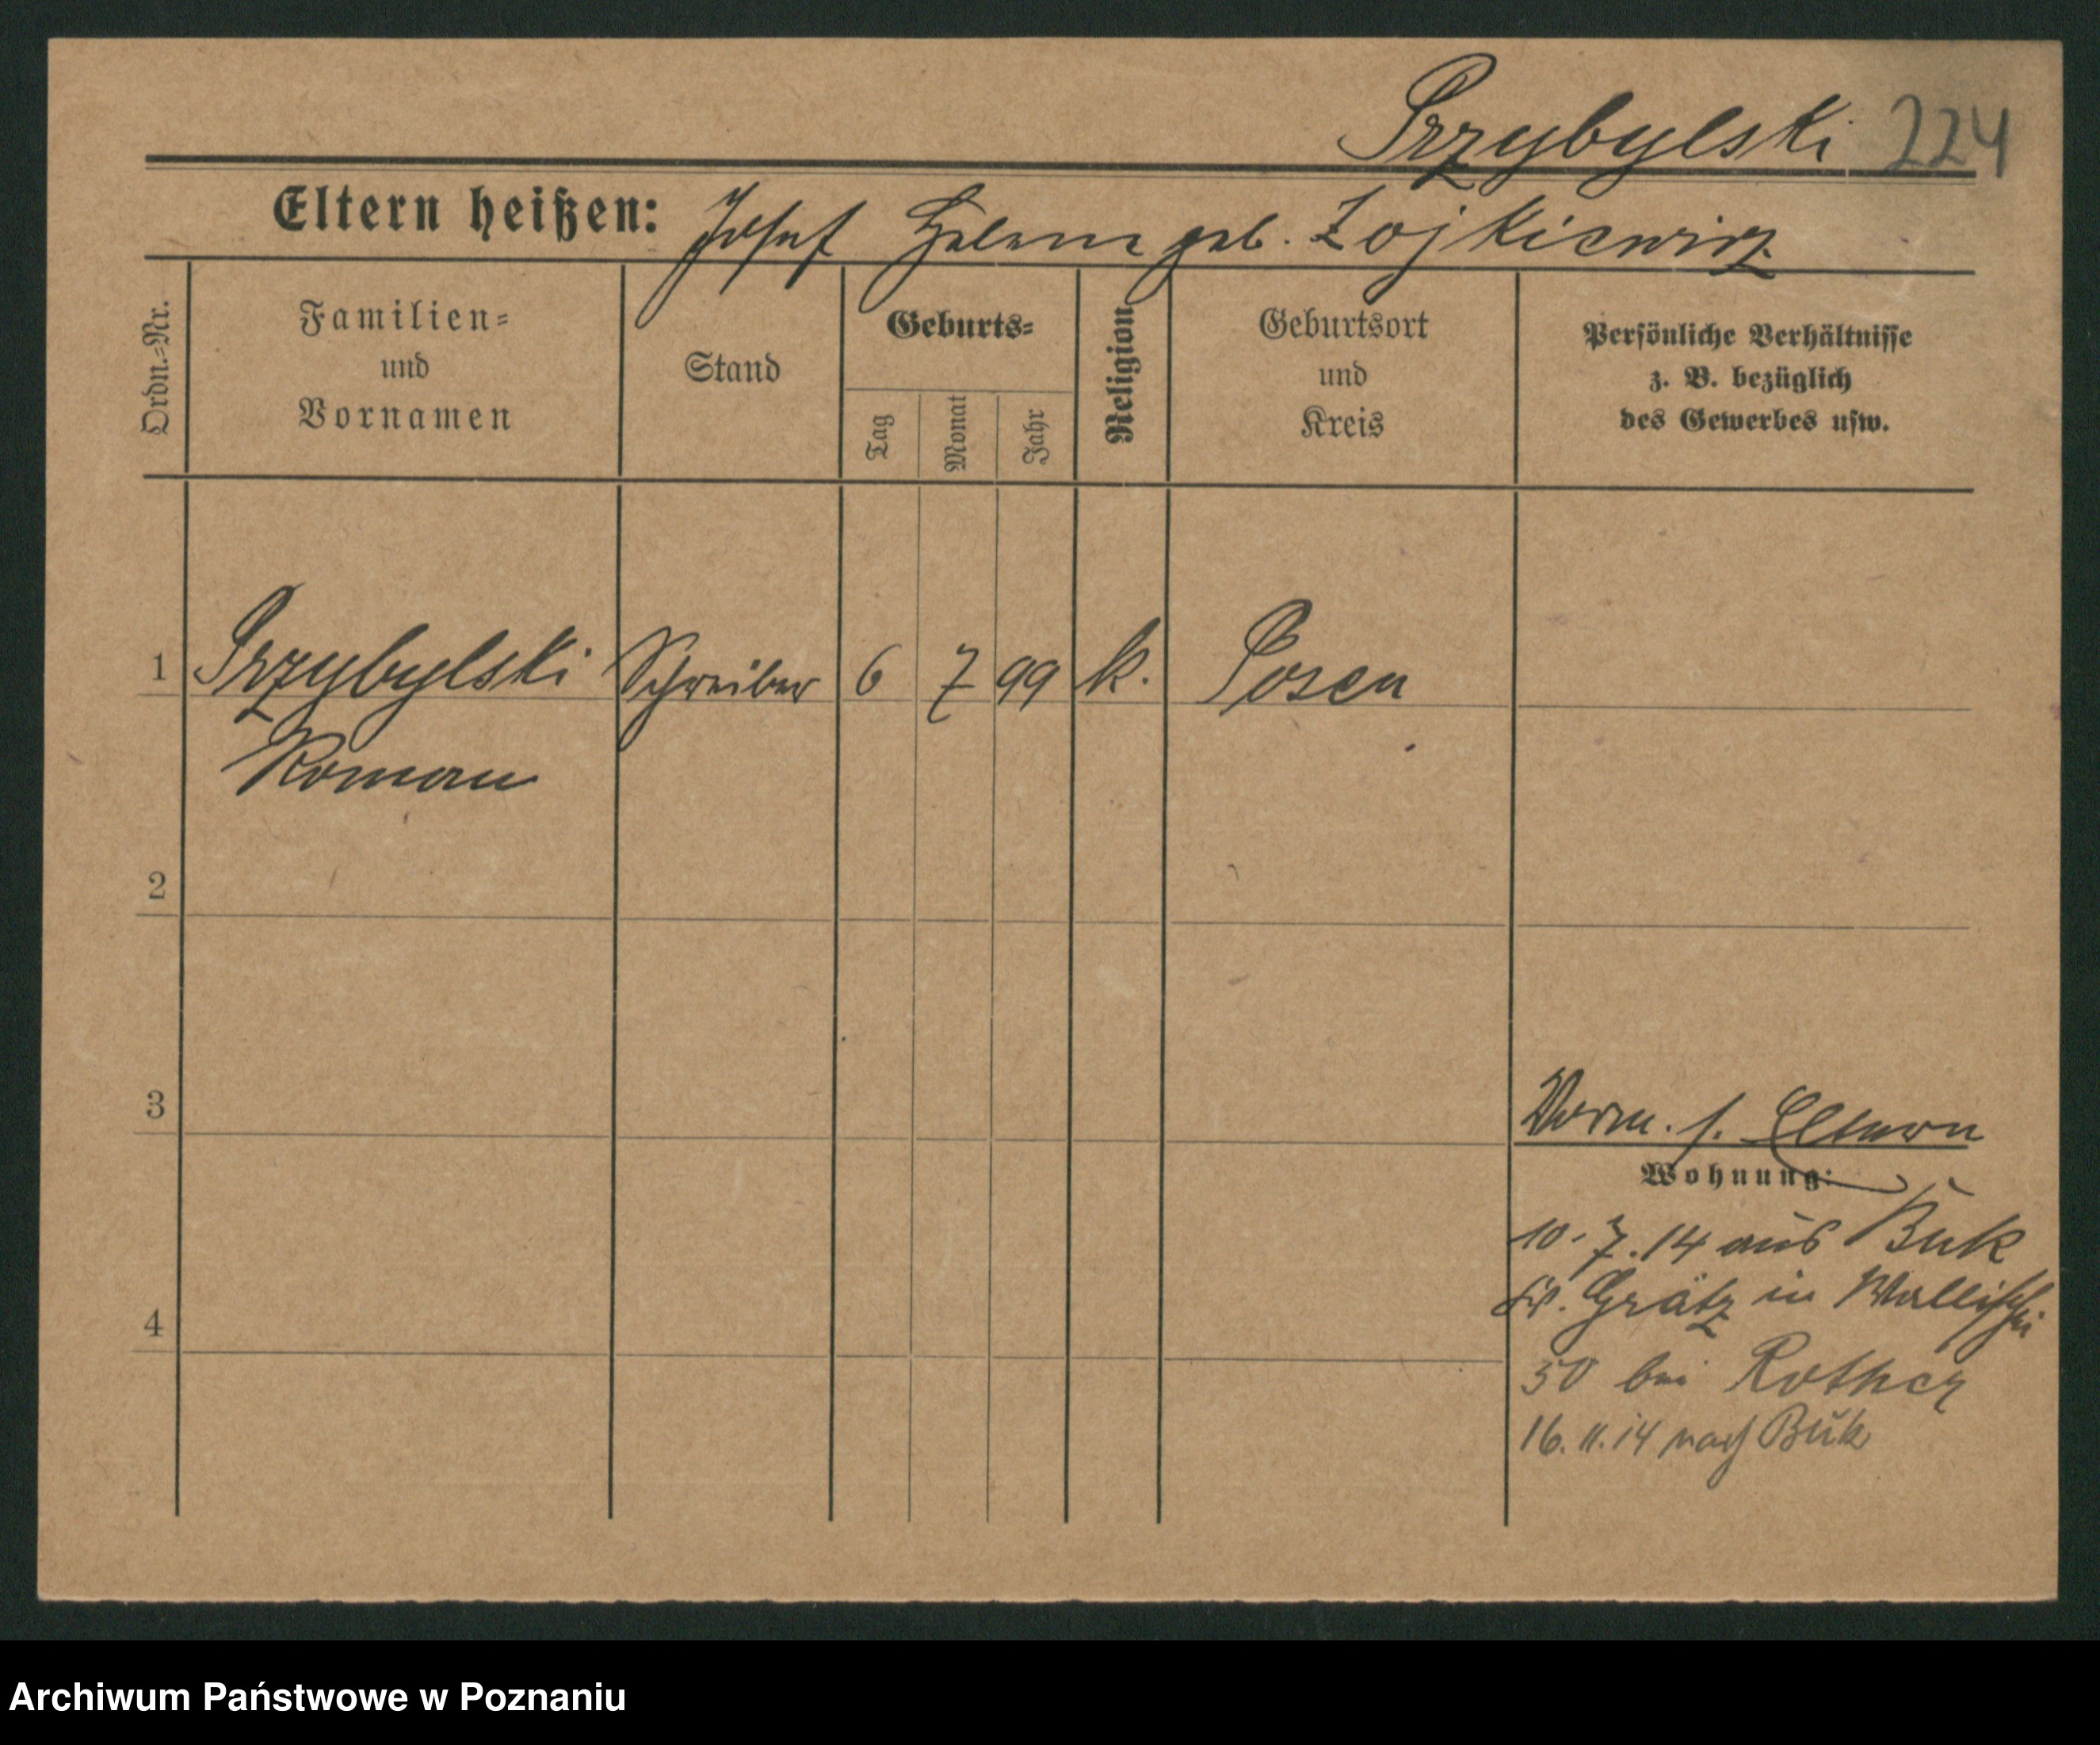 Przybylski 224
Eltern heißen: Josef Helene geb. Zojkiewicz
Ordn.=Nr.
Familien=
und
Vornamen
Stand
Geburts=
Tag
Monat
Jahr
Religion
Geburtsort
und
Kreis
Persönliche Verhältnisse
z. B. bezüglich
des Gewerbes usw.
1 Przybylski Schreiber 6 7 99 k. Posen
Roman
2
3
4
s. Eltern
Wohnung:
10. 7. 14 aus Buk
Kr. Grätz in Wallischei
50 bei Rother
16. 11. 14 nach Buk
Archiwum Państwowe w Poznaniu